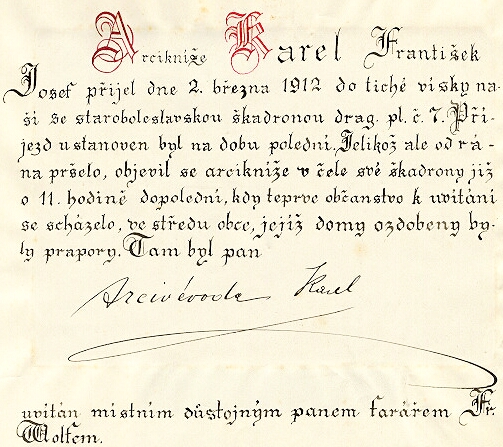 Arcikníže Karel František
Josef přijel dne 2. března 1912 do tiché vísky na-
ší se staroboleslavskou škadronou drag. pl. č. 7. Pří-
jezd ustanoven byl na dobu polední. Jelikož ale od rá-
na pršelo, objevil se arcikníže v čele své škadrony již
o 11. hodině dopolední, kdy teprve občanstvo k uvítání
se scházelo, ve středu obce, jejíž domy ozdobeny by-
ly prapory. Tam byl pan
Arcivévoda Karel
uvítán místním důstojným panem farářem Fr.
Wolfem.